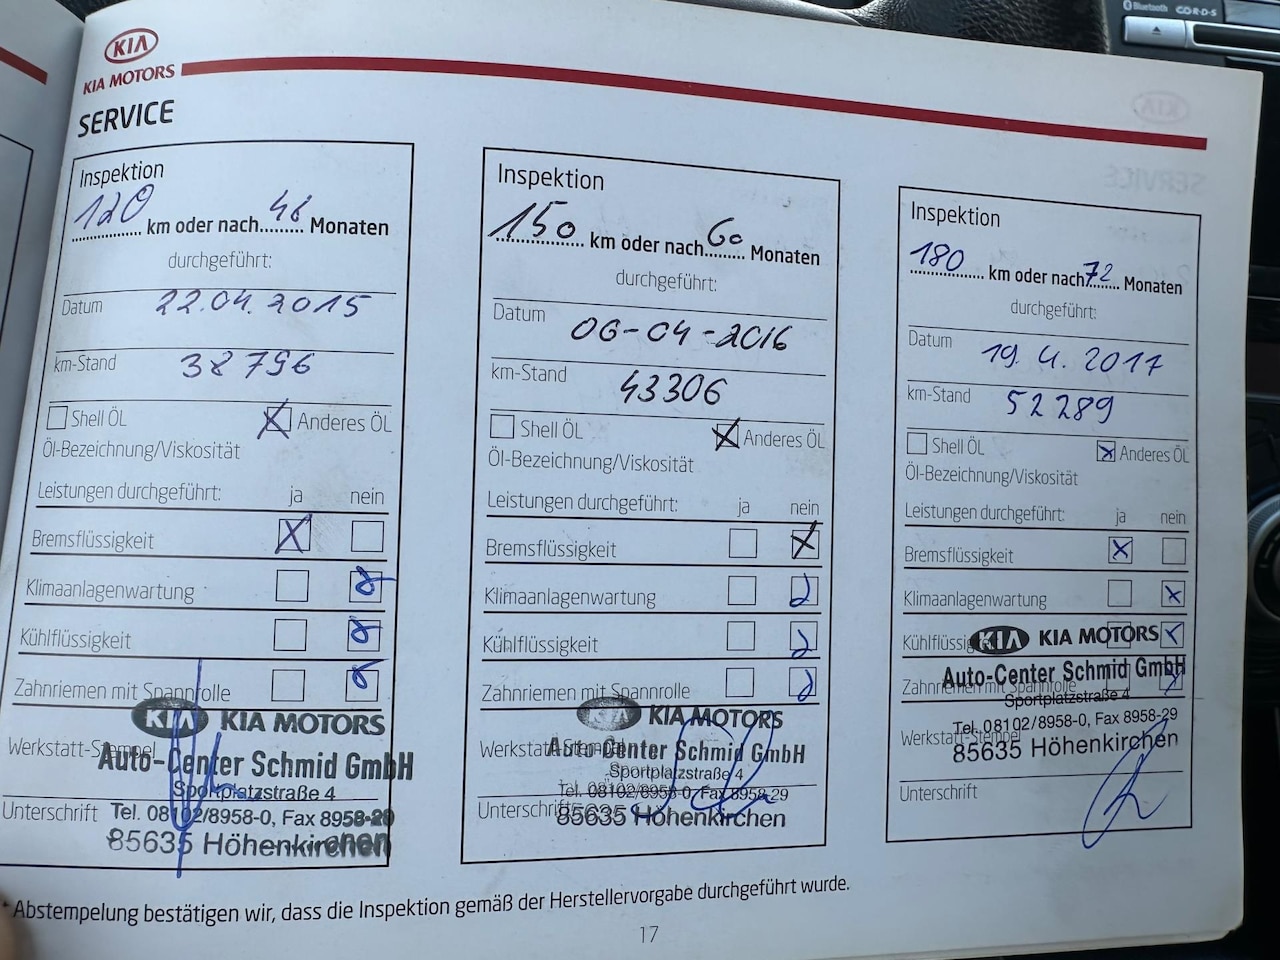 Bluetooth CD-R-D-S
KIA
KIA MOTORS
SERVICE
Inspektion
120 km oder nach 48 Monaten
durchgeführt:
Datum 22.04.2015
km-Stand 38796
Shell ÖL Anderes ÖL
Öl-Bezeichnung/Viskosität
Leistungen durchgeführt: ja nein
Bremsflüssigkeit
Klimaanlagenwartung
Kühlflüssigkeit
Zahnriemen mit Spannrolle
KIA KIA MOTORS
Werkstatt-Stempel
Auto-Center Schmid GmbH
Sportplatzstraße 4
Unterschrift
Tel. 08102/8958-0, Fax 8958-29
85635 Höhenkirchen
Inspektion
150 km oder nach 60 Monaten
durchgeführt:
Datum 06-04-2016
km-Stand 43306
Shell ÖL Anderes ÖL
Öl-Bezeichnung/Viskosität
Leistungen durchgeführt: ja nein
Bremsflüssigkeit
Klimaanlagenwartung
Kühlflüssigkeit
Zahnriemen mit Spannrolle
KIA KIA MOTORS
Werkstatt-Stempel
Auto-Center Schmid GmbH
Sportplatzstraße 4
Tel. 08102/8958-0, Fax 8958-29
Unterschrift
85635 Höhenkirchen
Inspektion
180 km oder nach 72 Monaten
durchgeführt:
Datum 19.4.2017
km-Stand 52289
Shell ÖL Anderes ÖL
Öl-Bezeichnung/Viskosität
Leistungen durchgeführt: ja nein
Bremsflüssigkeit
Klimaanlagenwartung
Kühlflüssigkeit
KIA KIA MOTORS
Auto-Center Schmid GmbH
Zahnriemen mit Spannrolle
Sportplatzstraße 4
Tel. 08102/8958-0, Fax 8958-29
Werkstatt-Stempel
85635 Höhenkirchen
Unterschrift
Abstempelung bestätigen wir, dass die Inspektion gemäß der Herstellervorgabe durchgeführt wurde.
17